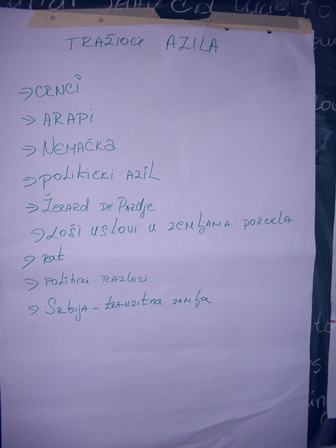 TRAŽIOCI AZILA
→ CRNCI
→ ARAPI
→ NEMAČKA
→ POLITIČKI AZIL
→ ŽERARD DE PARDJE
→ LOŠI USLOVI U ZEMLJAMA POREKLA
→ RAT
→ POLITIČKI RAZLOZI
→ Srbija - tranzitna zemlja